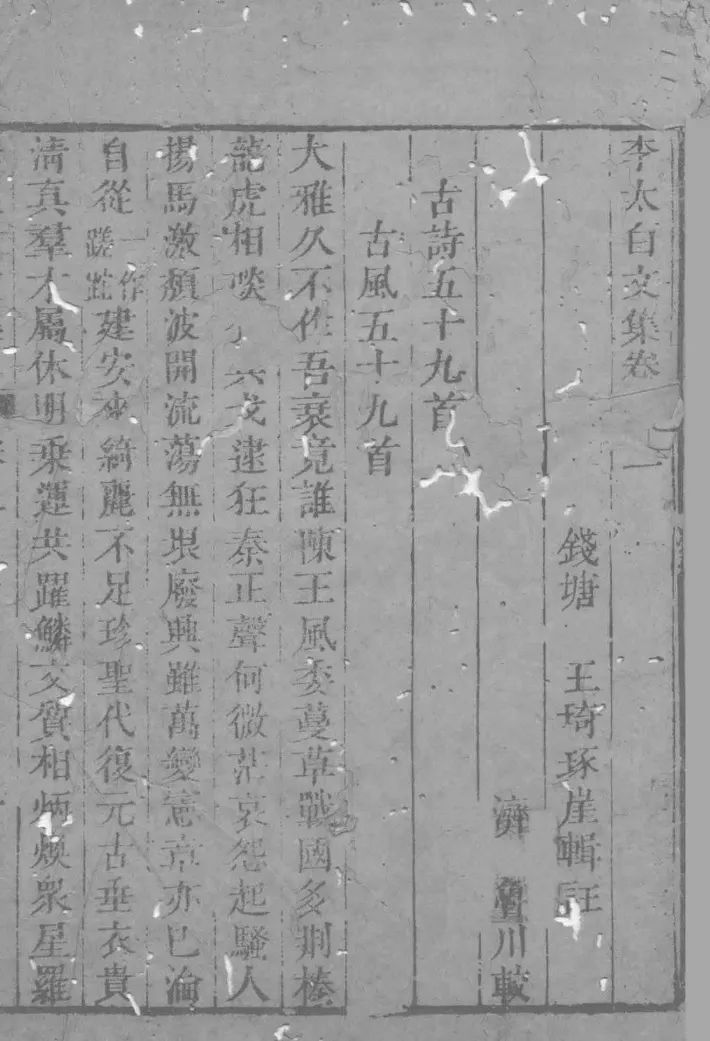 李太白文集卷一
錢塘 王琦琢崖輯註
濟 川較
古詩五十九首
古風五十九首
大雅久不作吾衰竟誰陳王風委蔓草戰國多荆榛
龍虎相啖 兵戈逮狂秦正聲何微茫哀怨起騷人
揚馬激頹波開流蕩無垠廢興雖萬變憲章亦已淪
自從一作蹉跎建安來綺麗不足珍聖代復元古垂衣貴
清真羣才屬休明乘運共躍鱗文質相炳煥衆星羅